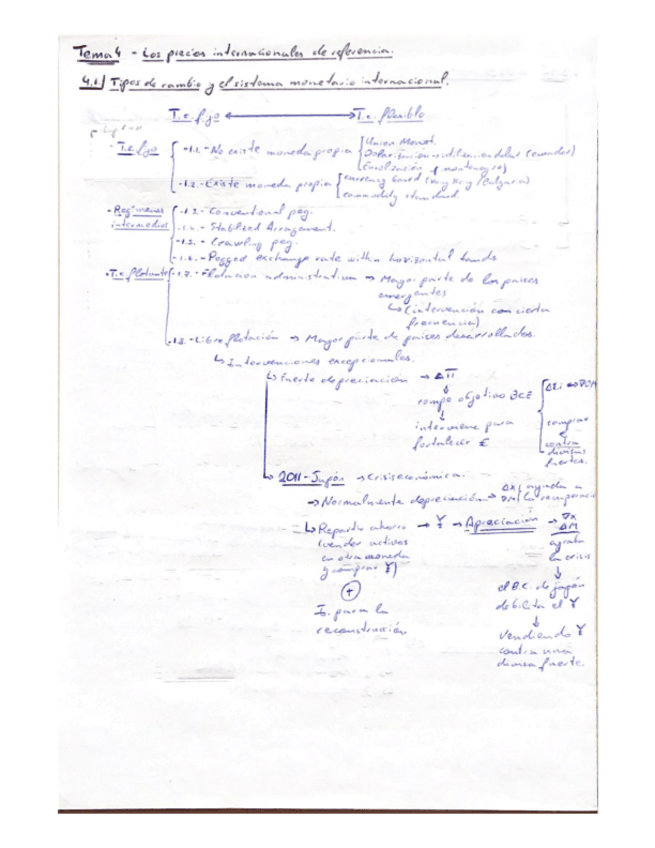 Tema 4 - Los precios internacionales de referencia.
4.1.) Tipos de cambio y el sistema monetario internacional.
T.c. fijo ⟷ T.c. flexible
- T.c. fijo
-1.1.- No existe moneda propia
Union Monet.
Dolarización → utilización dolar (ecuador)
Eurolización (montenegro)
-1.2.- Existe moneda propia
currency board (Hong Kong / Bulgaria)
commodity standard.
- Regimenes intermedios
-1.3.- Conventional peg.
-1.4.- Stablized Arragement.
-1.5.- Crawling peg.
-1.6.- Pegged exchange rate within horizontal bands
- T.c. flotante
-1.7.- Flotacion administrativa → Mayor parte de los países
emergentes
↳ (intervención con cierta
frecuencia)
-1.8.- Libre flotación → Mayor parte de países desarrollados.
↳ Intervenciones excepcionales.
↳ Fuerte depreciación → Δπ
↓
rompe objetivo BCE
↓
interviene para
fortalecer €
comprar
€
contra
divisas
fuertes.
↳ 2011 - Japón → Crisis económica.
→ Normalmente depreciación → ΔX ∇M ayuda a
la recuperació
↳ Repartir ahorro → ¥ → Apreciación → ∇X
ΔM
(vender activos
en otra moneda
y comprar ¥)
+
I. para la
reconstrucción.
agrava
la crisis
↓
el B.C. de japón
debilita el ¥
↓
Vendiendo ¥
contra una
divisa fuerte